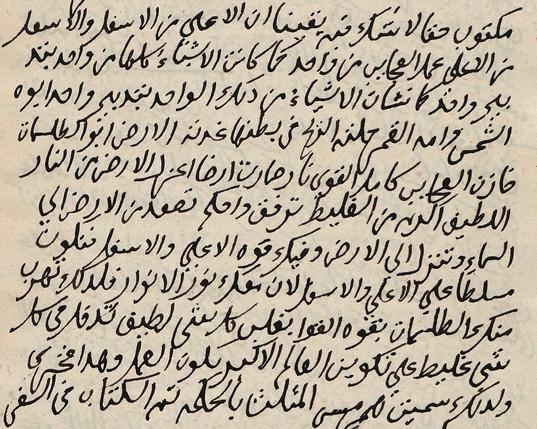 مكتوب حقا لا شك فيه يقينا ان الاعلى من الاسفل والاسفل
من الاعلى عمل العجايب من واحد كما كانت الاشياء كلها من واحد
واحد كما نشأت الاشياء من ذلك الواحد بتدبير واحد ابوه
الشمس وامه القمر حملته الريح في بطنها غذته الارض ابو الطلسمات
خازن العجايب كامل القوى نار صارت ارضا اعزل الارض من النار
اللطيف اكرم من الغليظ برفق وحكم تصعد من الارض الى
السماء وتنزل الى الارض وفيك قوه الاعلى والاسفل فتكون
مسلطا على الاعلى والاسفل لان معك نور الانوار فلذلك تهرب
منك الظلمات بقوه القوا تغلب كل شى لطيف تدخل في كل
شى غليظ على تكوين العالم الاكبر يكون العمل وهدا فخرى
ولذلك سميت هرمس المثلث بالحكمه تم الكتاب في